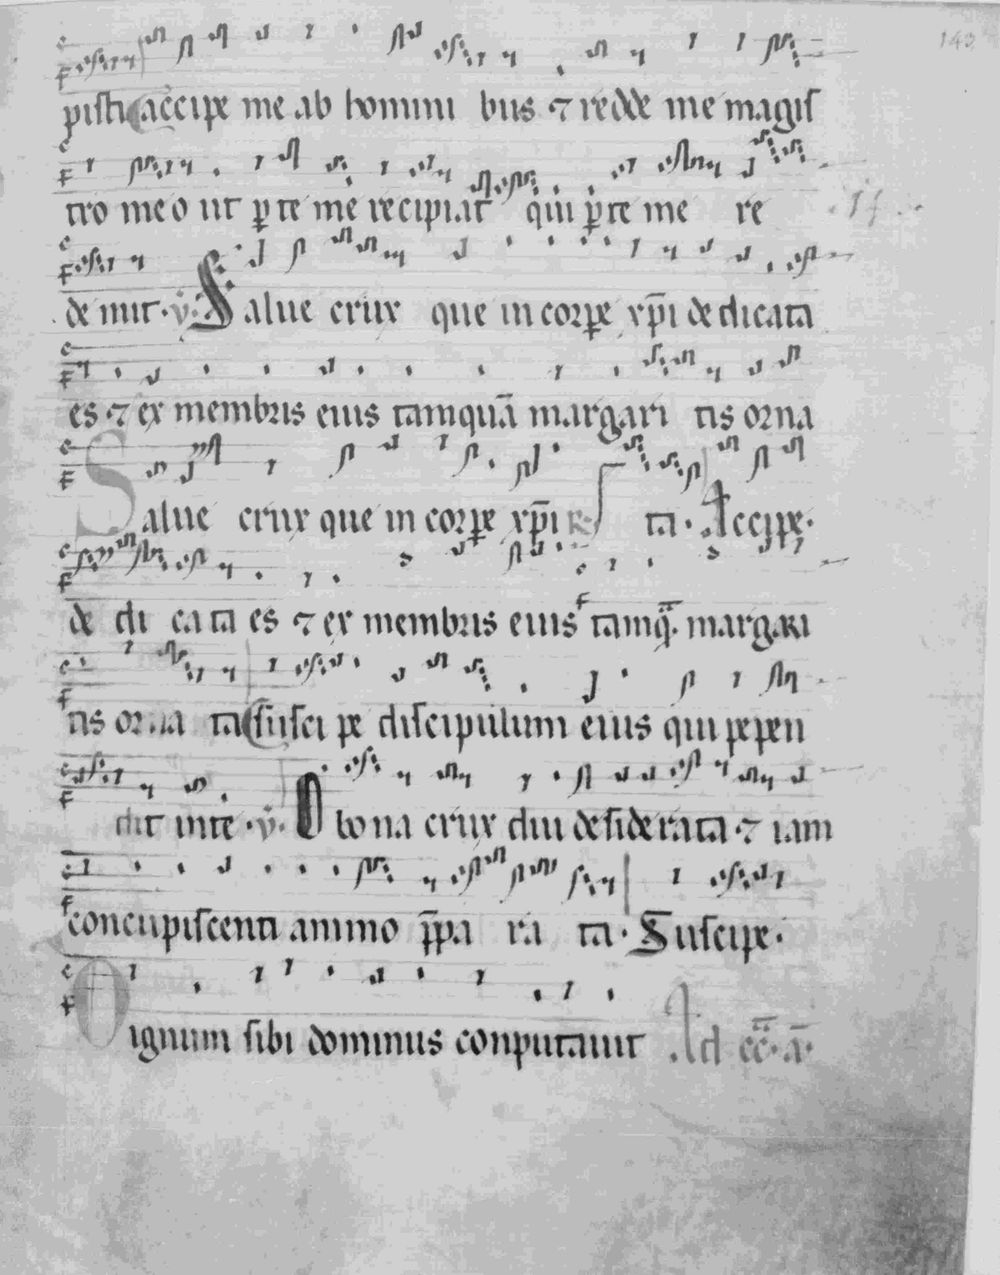 140
pisti accipe me ab homini bus ⁊ redde me magis
tro meo ut p̱ te me recipiat qui p̱ te me re
de mit · v̇ · Salue crux que in corp̱e xp̄i dedicata
es ⁊ ex membris eius tamquā margari tis orna
Salue crux que in corp̱e xp̄i R ta · Accipe ·
de di ca ta es ⁊ ex membris eius tamq̄ · margari
tis orna ta susci pe discipulum eius qui pepen
dit in te · v̇ · O bona crux diu desiderata · ⁊ iam
concupiscenti animo p̄pa ra ta · Suscipe ·
Dignum sibi dominus conputauit Ad